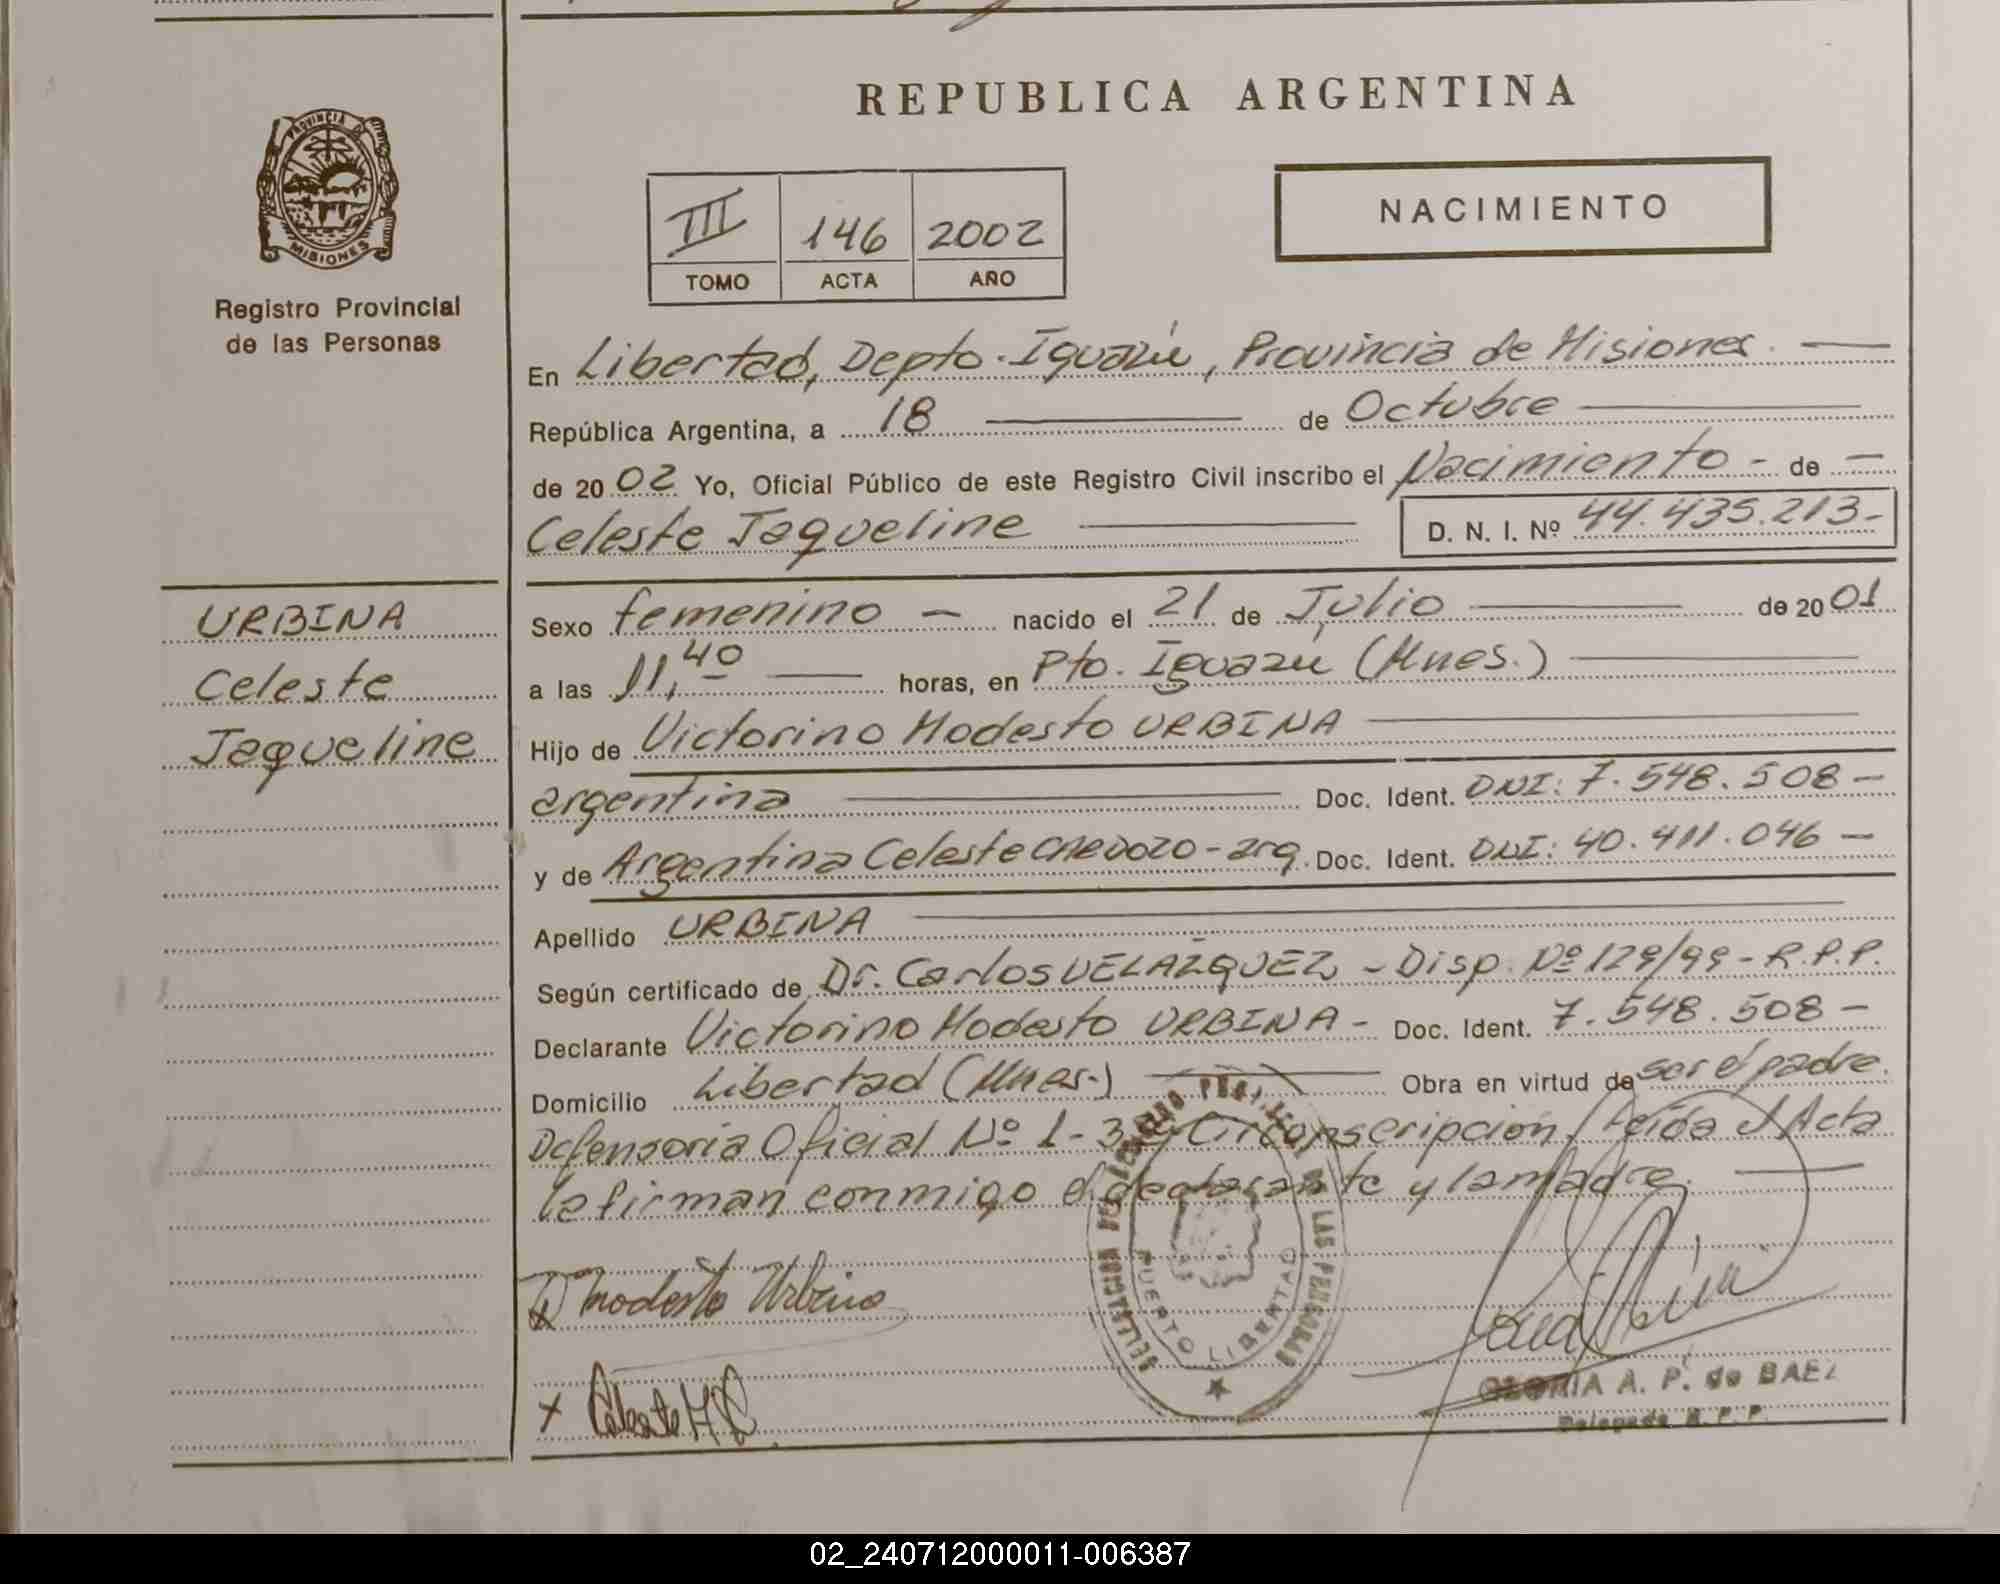 REPUBLICA ARGENTINA
PROVINCIA DE
MISIONES
Registro Provincial
de las Personas
III 146 2002
TOMO ACTA AÑO
NACIMIENTO
En Libertad, Depto. Iguazú, Provincia de Misiones.
República Argentina, a 18 de Octubre
de 2002 Yo, Oficial Público de este Registro Civil inscribo el Nacimiento - de -
Celeste Jaqueline D. N. I. Nº 44.435.213-
URBINA
Celeste
Jaqueline
Sexo femenino - nacido el 21 de Julio de 2001
a las 11,40 horas, en Pto. Iguazú (Mnes.)
Hijo de Victorino Modesto URBINA
argentina Doc. Ident. DNI: 7.548.508-
y de Argentina Celeste - arg. Doc. Ident. DNI: 40.411.046-
Apellido URBINA
Según certificado de Dr. Carlos VELAZQUEZ - Disp. Nº 129/99 - R.P.P.
Declarante Victorino Modesto URBINA - Doc. Ident. 7.548.508-
Domicilio Libertad (Mnes.) Obra en virtud de ser el padre.
Defensoría Oficial Nº 1 - 3ª Circonscripción, leída el Acta
la firman conmigo el declarante y la madre.
modesto Urbina
x Celeste
DELEGACION REGISTRO PROVINCIAL DE LAS PERSONAS
PUERTO LIBERTAD
GLORIA A. P. de BAEZ
Delegada R. P. P.
02_240712000011-006387